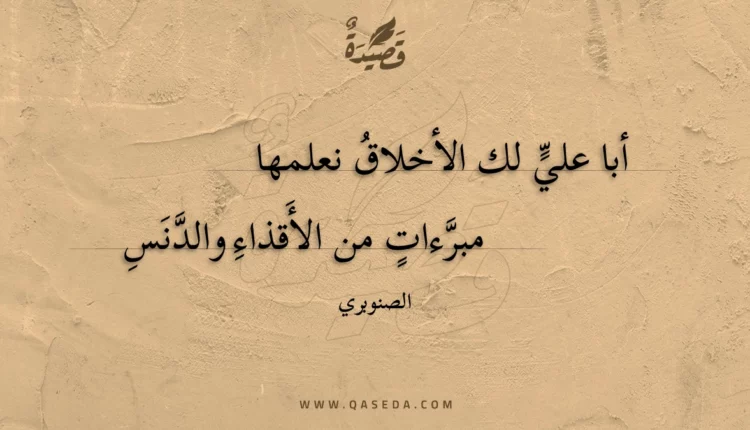 قَصِيدَةٌ
أبا عليٍّ لك الأخلاقُ نعلمها
مبرَّءاتٍ من الأَقذاءِ والدَّنَسِ
الصنوبري
WWW.QASEDA.COM